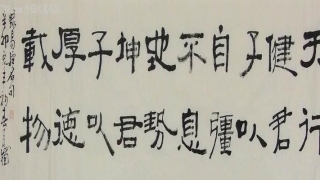 天行
健君
子以
自彊
不息
地勢
坤君
子以
厚德
載物
辛卯